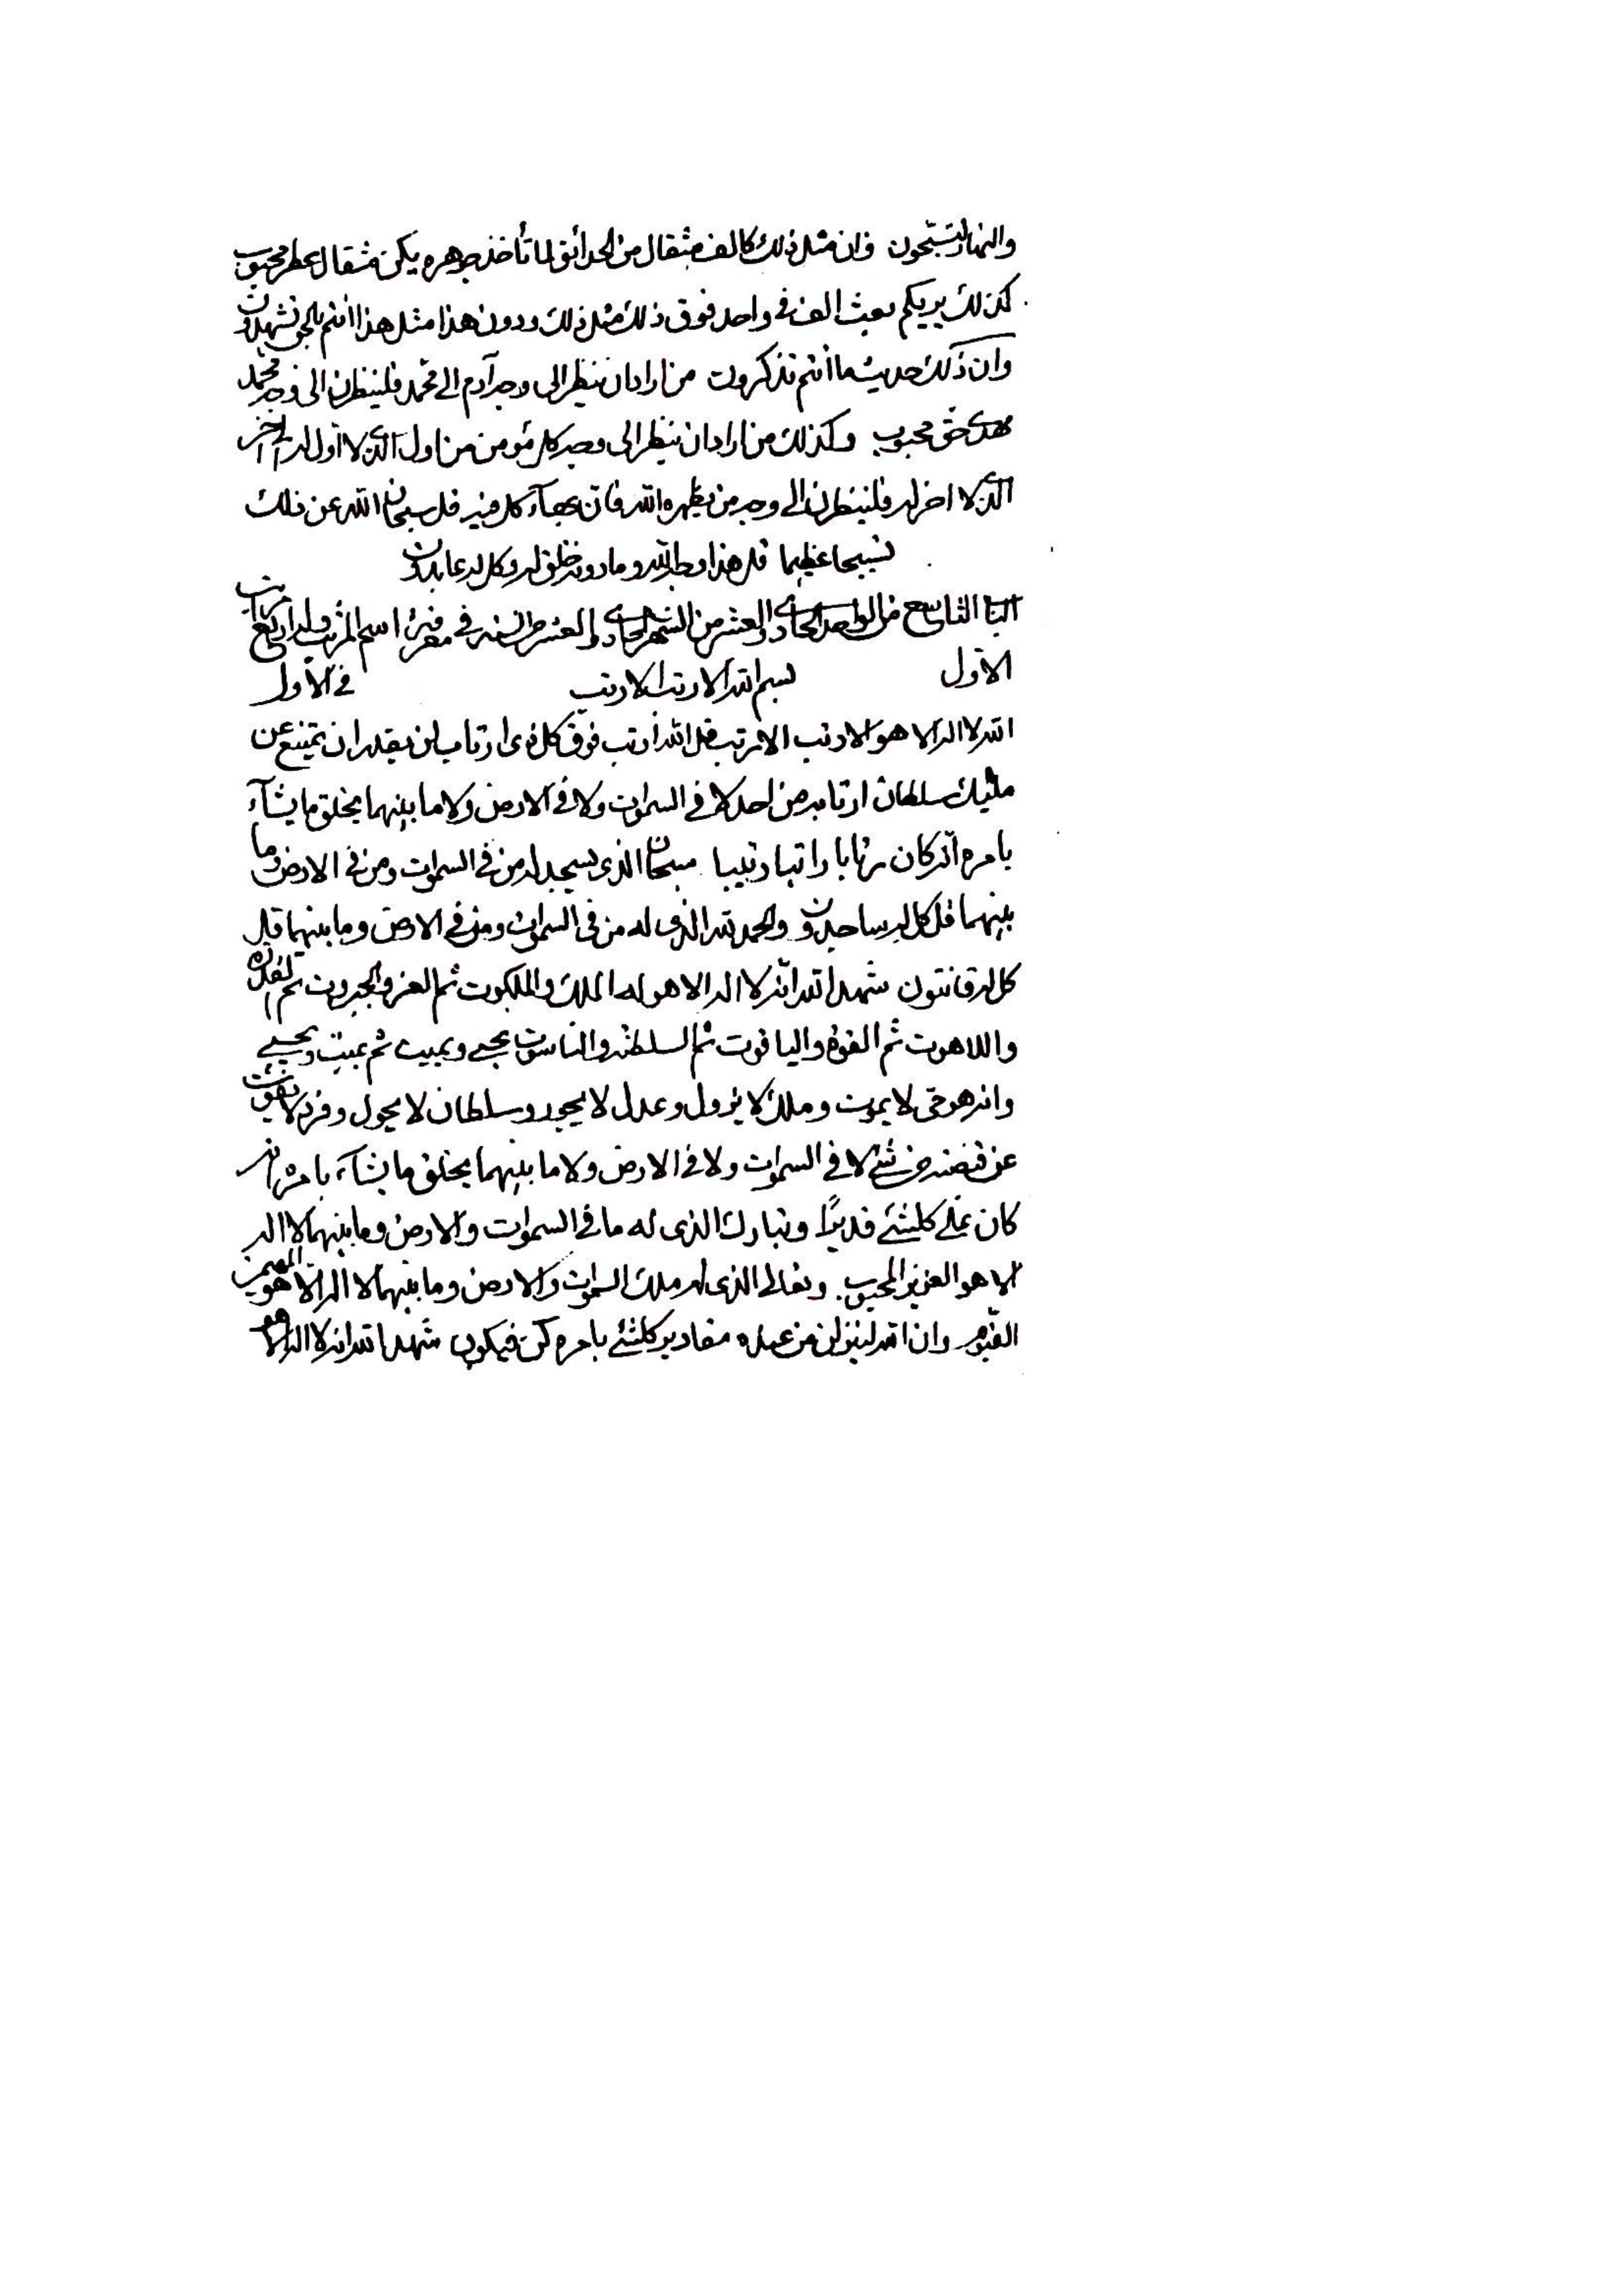 والنهار لتسبّحون وان مثل ذلك كالف مثقال من الحدائق لما تأخذ جوهره يكن مثقال عطر محبوب
كذلك يريكم بعث الف في واحد فوق ذلك مثل ذلك ودون هذا مثل هذا انتم بالحق تشهدون
وان ذلك حديث ما انتم تذكرون من اراد ان ينظر الى وجه آدم الى محمّد فلينظرن الى وجه محمّد
مهدى حق محبوب وكذلك من اراد ان ينظر الى وجه كل مؤمن من اول الذى لا اول له الى اخر
الذى لا اخر له فلينظرن الى وجه من يظهره الله فان بهآء كل فيه قل سبحان الله عن ذلك
تسبيحا عظيما قل هذا وجه الله وما دونه خلق له وكل له عابدون
الباب التاسع من الواحد الحادى والعشر من الشهر الحادى والعشر من السنه في معرفة اسم المرتب وله اربع مراتب
الاوّل بسم الله الارتب الارتب في الاوّل
الله لا اله الا هو الارتب الارتب قل الله ارتب فوق كل ذى ارتاب لن يقدر ان يمتنع عن
مليك سلطان ارتابه من احد لا في السموات ولا في الارض ولا ما بينهما يخلق ما يشآء
بامره انه كان رتابا راتبا رتيبا سبحان الذى يسجد له من في السموات ومن في الارض وما
بينهما قل كل له ساجدون والحمد لله الذى له من في السموات ومن في الارض وما بينهما قل
كل له قانتون شهد الله انه لا اله الا هو له الملك والملكوت ثم العز والجبروت ثم القدرة
واللاهوت ثم القوة والياقوت ثم السلطنه والناسوت يحيى ويميت ثم يميت ويحيي
وانه هو حى لا يموت وملك لا يزول وعدل لا يجور وسلطان لا يحول وفرد لا يفوت
عن قبضته من شئ لا في السموات ولا في الارض ولا ما بينهما يخلق ما يشآء بامره انه
كان على كلشئ قديرًا وتبارك الذى له ما في السموات والارض وما بينهما لا اله
الا هو العزيز المحبوب وتعالى الذى له ملك السموات والارض وما بينهما لا اله الا هو المهيمن
القيّوم وان الله لينزلن من عبده مقادير كلشئ بامره كن فيكون شهد الله انه لا اله الا هو